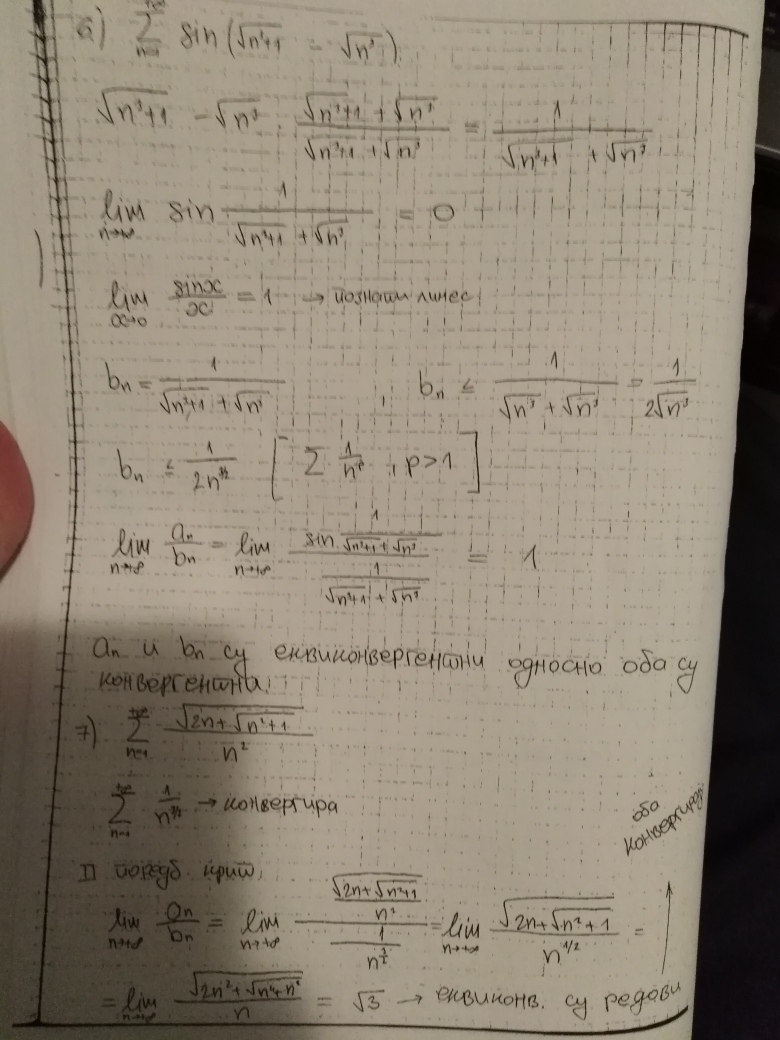 6) \sum_{n=1}^{+\infty} sin(√(n³+1) - √(n³))
√(n³+1) - √(n³) · (√(n³+1) + √(n³))/(√(n³+1) + √(n³)) = 1/(√(n³+1) + √(n³))
lim_{n→+∞} sin 1/(√(n³+1) + √(n³)) = 0
lim_{x→0} sinx/x = 1 → познати лимес
b_n = 1/(√(n³+1) + √(n³)) , b_n ≤ 1/(√(n³) + √(n³)) = 1/(2√(n³))
b_n ≤ 1/(2n^{3/2}) [ Σ 1/n^p , p>1 ]
lim_{n→+∞} a_n/b_n = lim_{n→+∞} (sin 1/(√(n³+1) + √(n³)))/(1/(√(n³+1) + √(n³))) = 1
a_n и b_n су еквиконвергентни односно оба су
конвергентни.
7) \sum_{n=1}^{+\infty} √(2n+√(n²+1))/n²
\sum_{n=1}^{+\infty} 1/n^{3/2} → конвергира
II поредб. крит.
lim_{n→+∞} a_n/b_n = lim_{n→+∞} (√(2n+√(n²+1))/n²)/(1/n^{3/2}) = lim_{n→+∞} √(2n+√(n²+1))/n^{1/2} =
= lim_{n→+∞} √(2n²+√(n⁴+n²))/n = √3 → еквиконв. су редови
оба
конвергирају